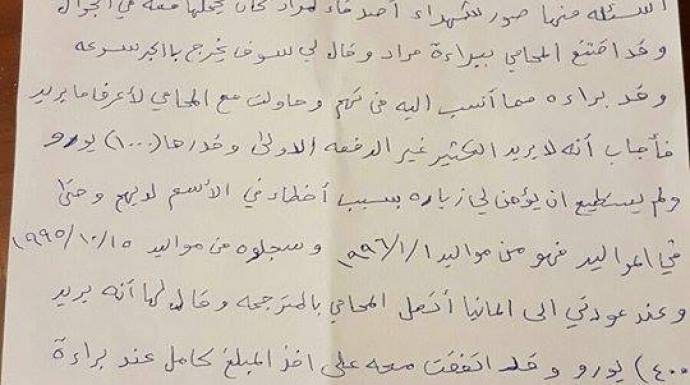 الاسئله منها صور شهداء أصدقاء لمراد كان يحملها معه في الجوال
وقد اقتنع المحامي ببراءة مراد وقال لي سوف يخرج باالجر سرعه
وقد براءه مما أنسب اليه من تهم وحاولت مع المحامي لأعرف ما يريد
فأجاب أنه لا يريد الكثير غير الدفعه الاولى وقدرها (١٠٠٠) يورو
ولم يستطيع ان يؤمن لي زياره بسبب أخطاء في الأسم لديهم وحتى
في المواليد فهو من مواليد ١/١/١٩٩٦ وسجلوه من مواليد ١٥/١٠/١٩٩٥
وعند عودتي الى المانيا أتصل المحامي بالمترجمه وقال لها أنه يريد
٤٠٠٠) يورو وقد اتفقت معه على اخذ المبلغ كامل عند براءة